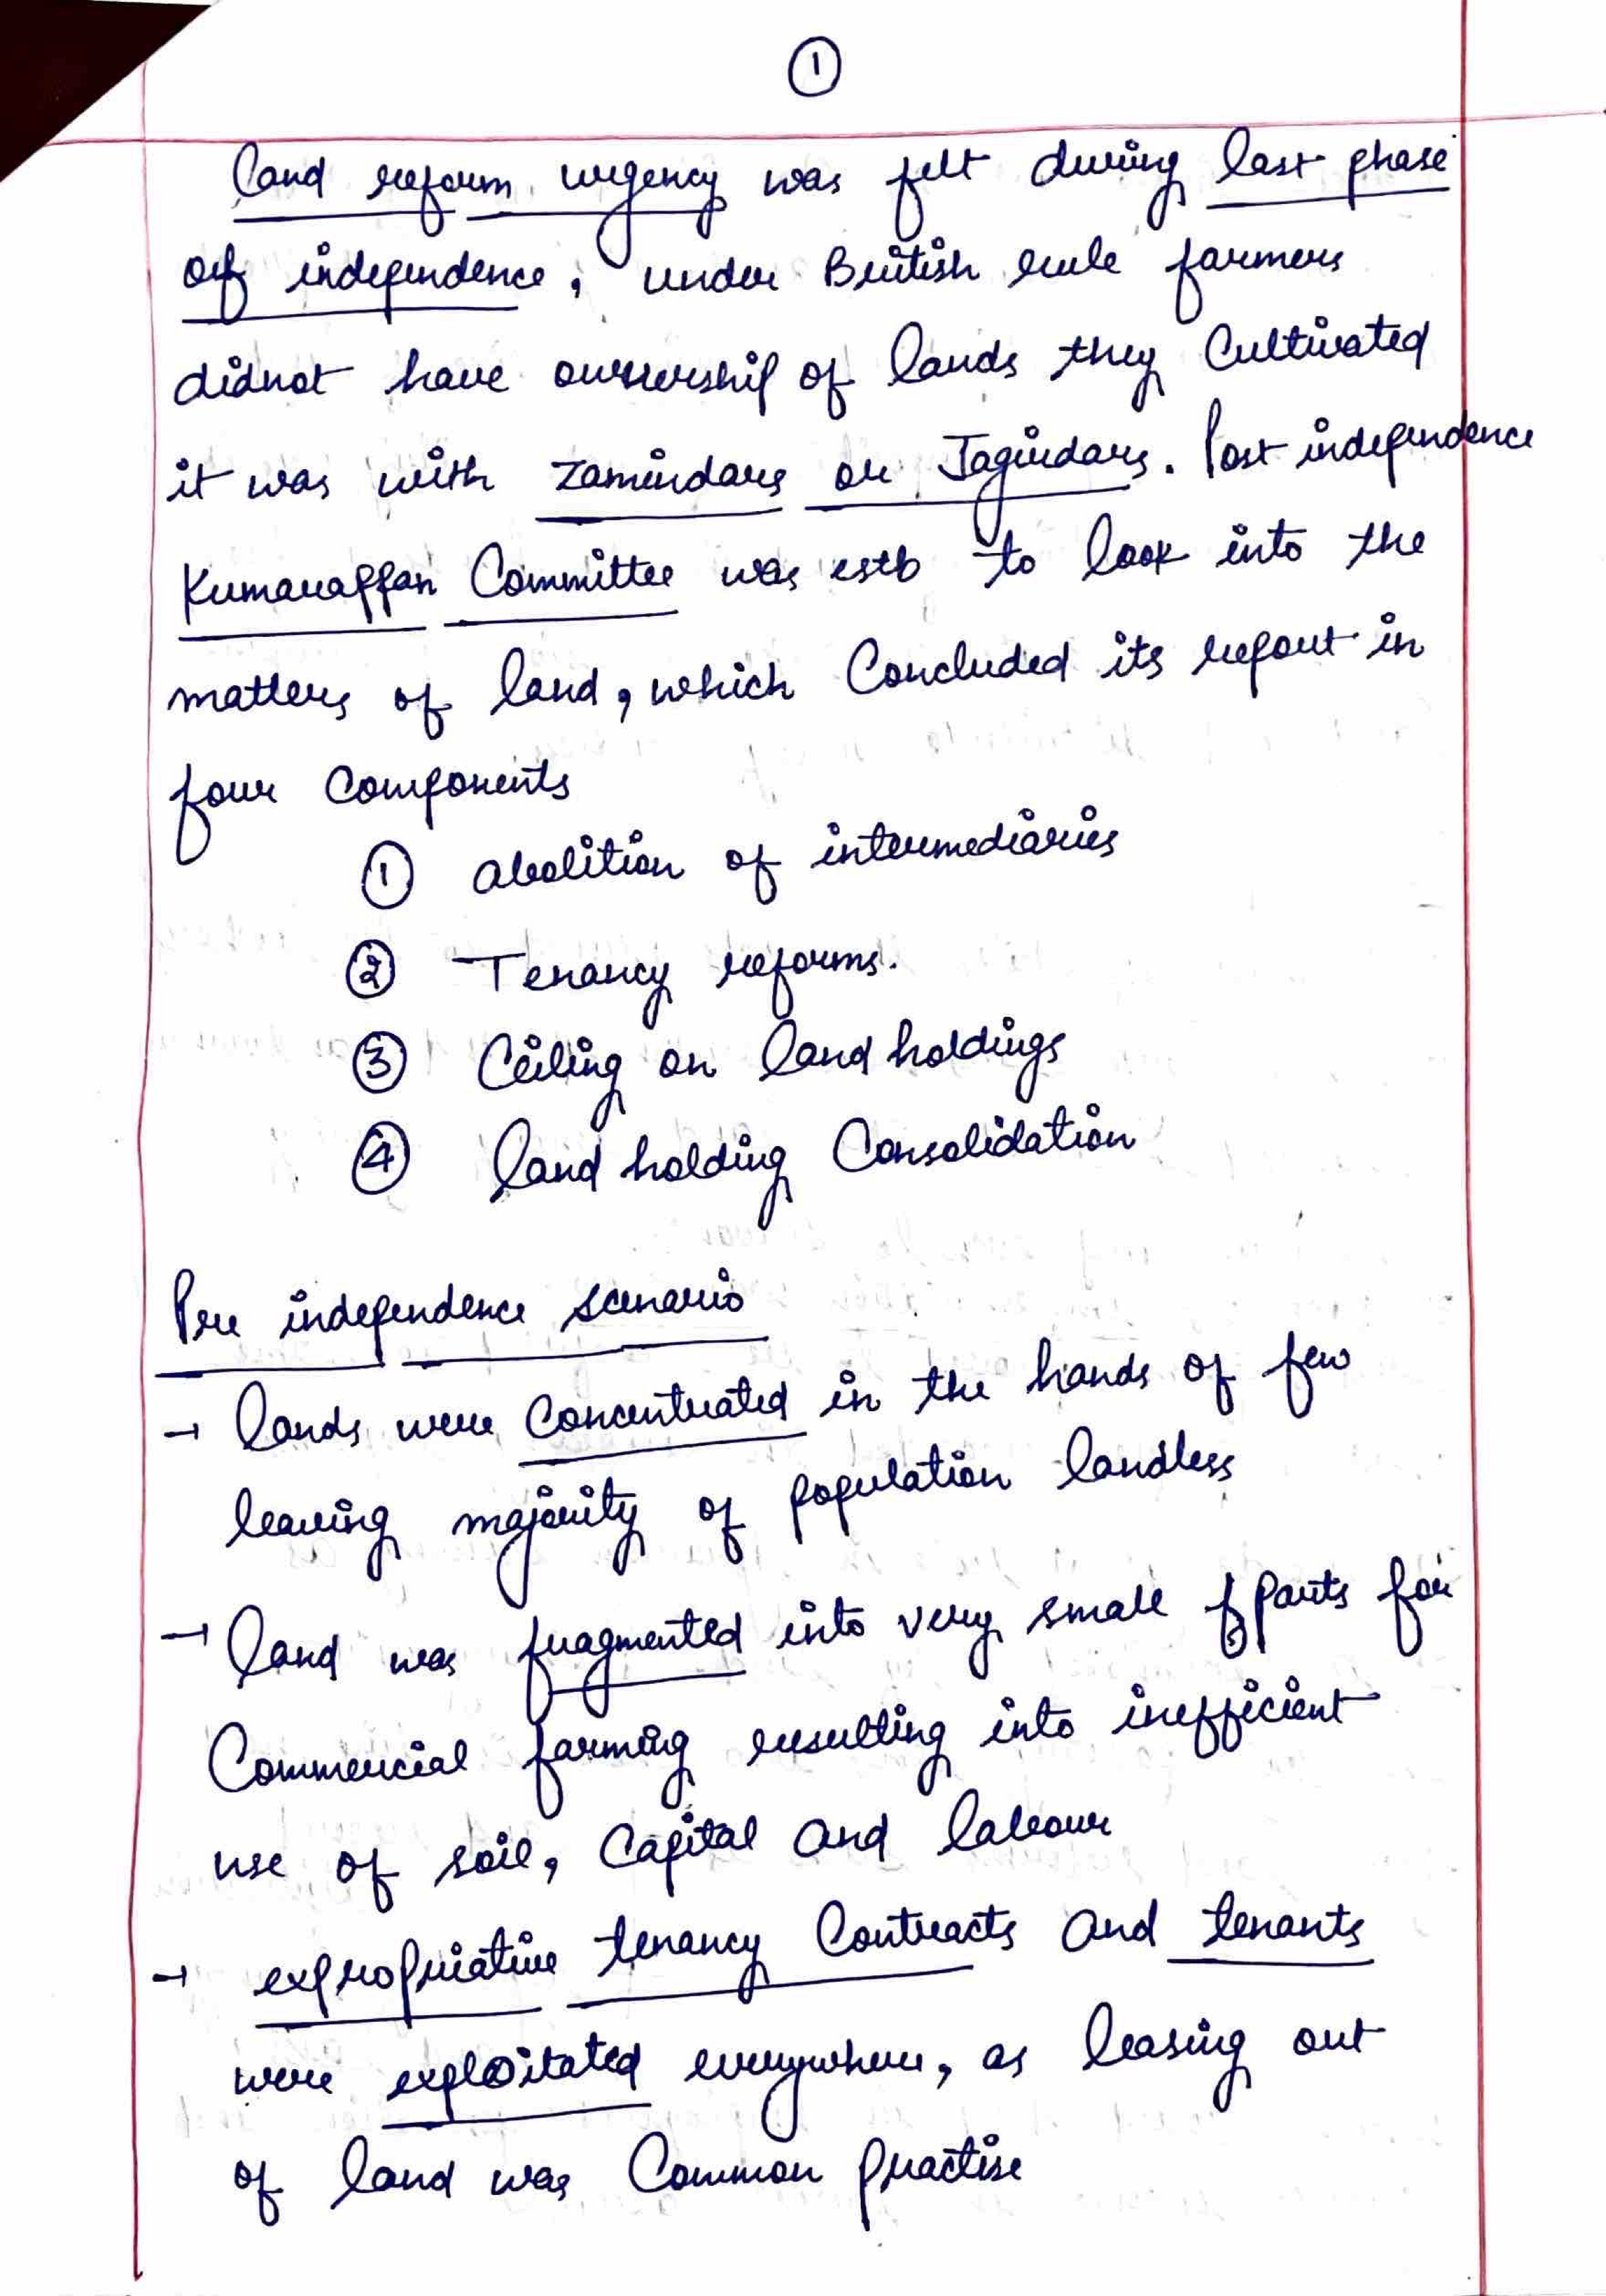 ①
Land reform urgency was felt during last phase
of independence, under British rule farmers
didnot have ownership of lands they Cultivated
it was with Zamindars or Jagirdars. Post independence
Kumarappan Committee was estb to look into the
matters of land, which Concluded its report in
four Components
① Abolition of intermediaries
② Tenancy reforms.
③ Ceiling on land holdings
④ Land holding Consolidation
Pre independence scenario
→ Lands were Concentrated in the hands of few
leaving majority of population landless
→ Land was fragmented into very small parts for
Commercial farming resulting into inefficient
use of soil, Capital and labour
→ expropriative tenancy Contracts and tenants
were exploitated everywhere, as leasing out
of land was Common practise